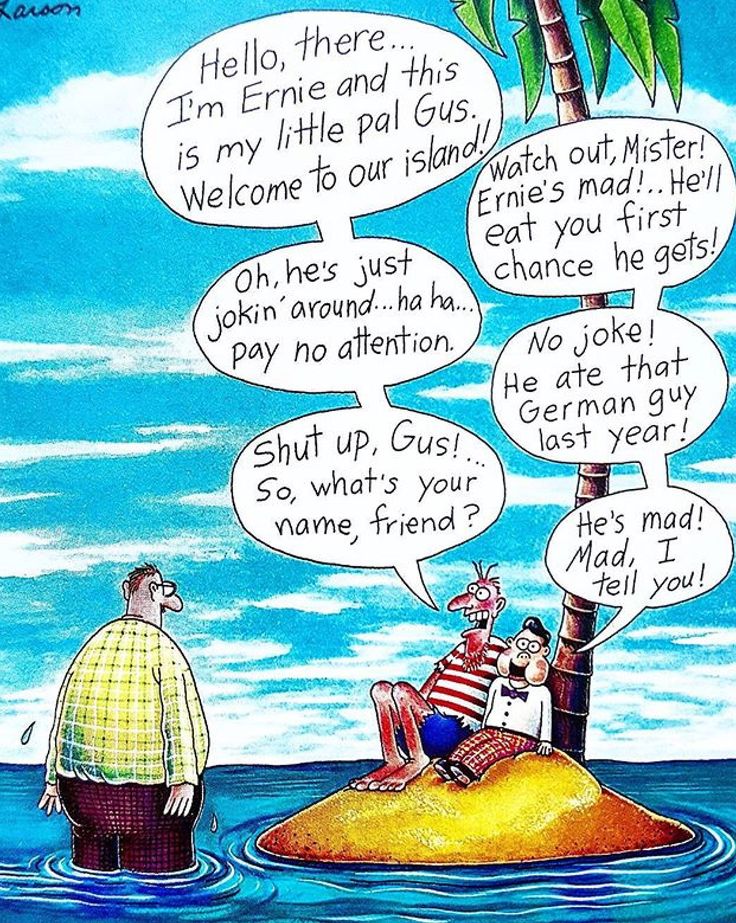 Larson
Hello, there...
I'm Ernie and this
is my little pal Gus.
Welcome to our island!
Watch out, Mister!
Ernie's mad!..He'll
eat you first
chance he gets!
Oh, he's just
jokin' around...ha ha...
pay no attention.
No joke!
He ate that
German guy
last year!
Shut up, Gus!...
So, what's your
name, friend?
He's mad!
Mad, I
tell you!